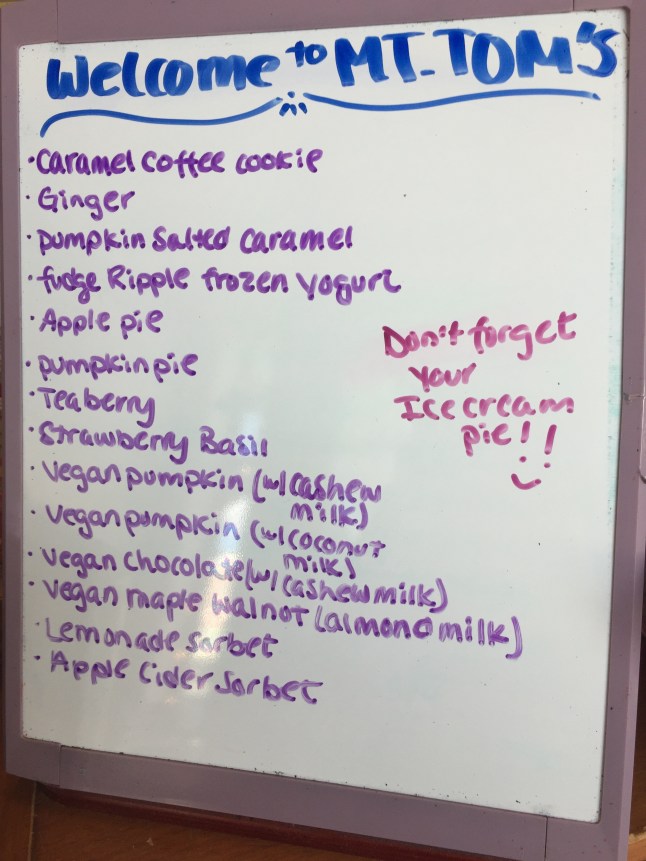 Welcome to MT. TOM'S
• Caramel Coffee cookie
• Ginger
• pumpkin Salted Caramel
• fudge Ripple frozen yogurt
• Apple pie
• pumpkin pie
• Teaberry
• Strawberry Basil
• Vegan pumpkin (w/ cashew
milk)
• Vegan pumpkin (w/ coconut
milk)
• Vegan chocolate (w/ cashew milk)
• Vegan maple walnut (almond milk)
• Lemonade Sorbet
• Apple Cider Sorbet
Don't forget
your
Ice cream
pie!!